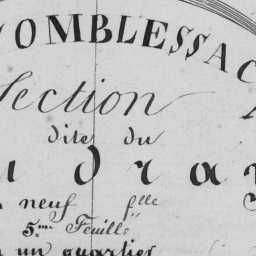 COMBLESSAC
Section
dite du
u dra
neuf flle
5.me Feuille
un quartier